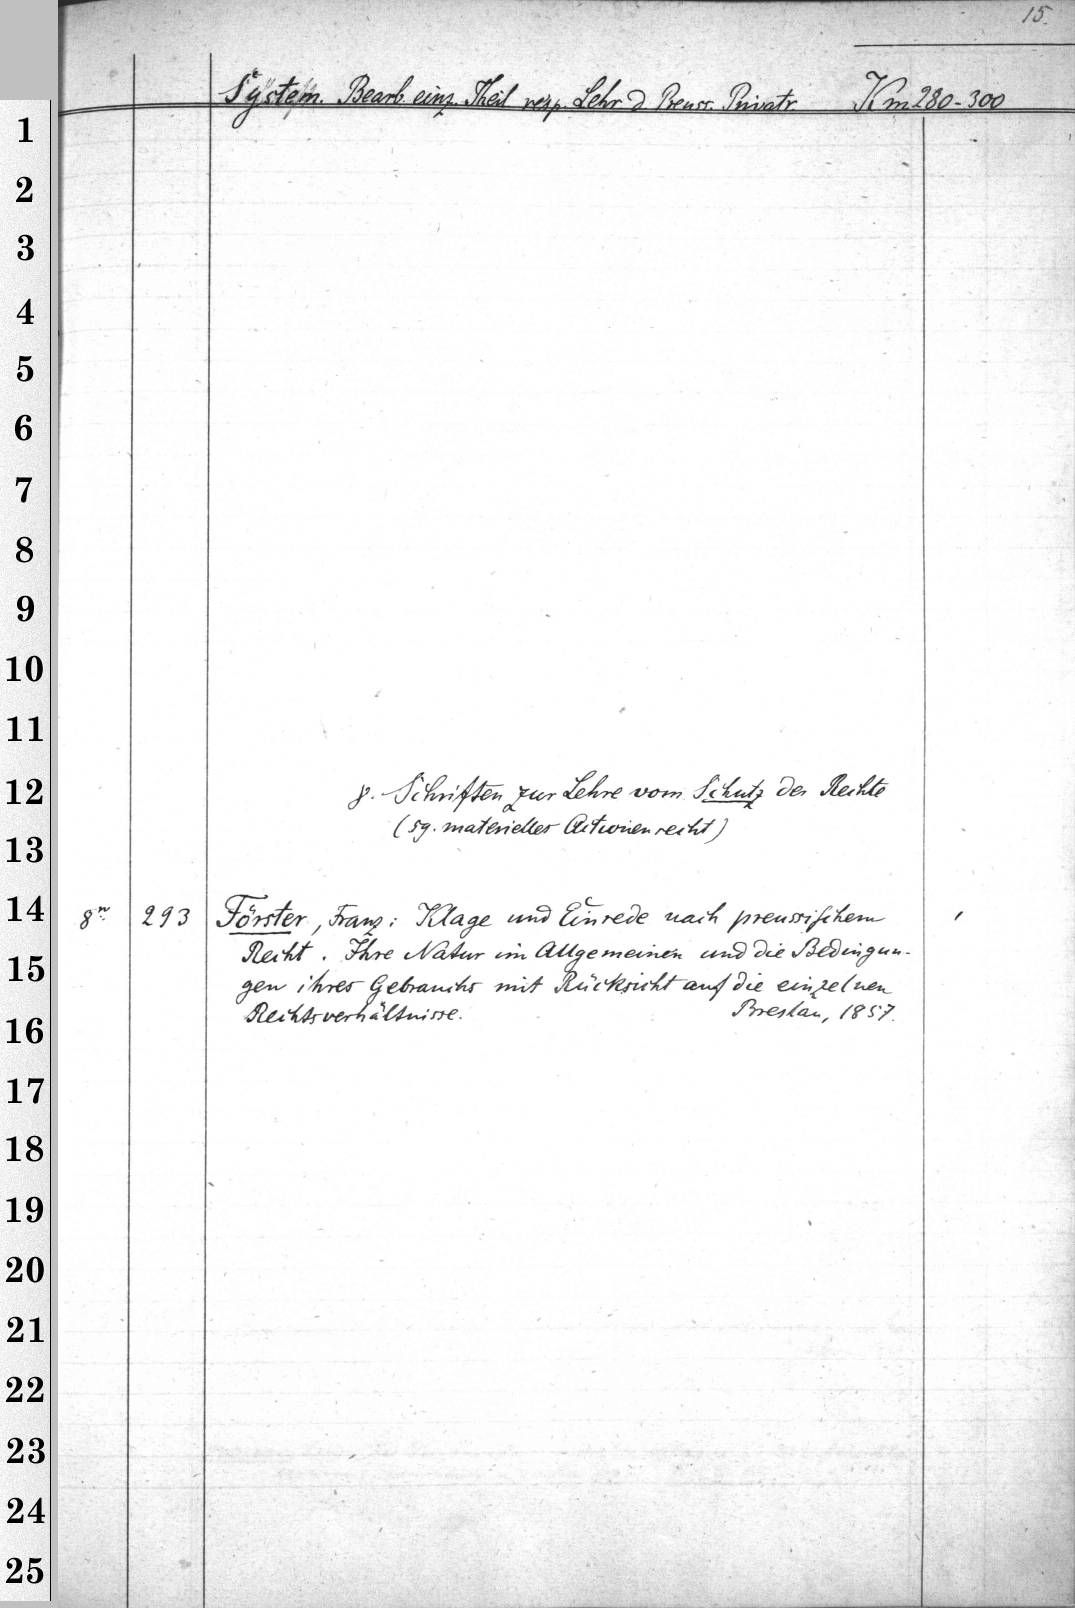 15.
System. Bearb. einz. Theil resp. Lehr. d. Preuss. Privatr. Km 280-300
1
2
3
4
5
6
7
8
9
10
11
12
13
14
15
16
17
18
19
20
21
22
23
24
25
γ. Schriften zur Lehre vom Schutz der Rechte
(sg. materielles Actionenrecht)
8° 293 Förster, Franz: Klage und Einrede nach preussischem
Recht. Ihre Natur im Allgemeinen und die Bedingun-
gen ihres Gebrauchs mit Rücksicht auf die einzelnen
Rechtsverhältnisse. Breslau, 1857.